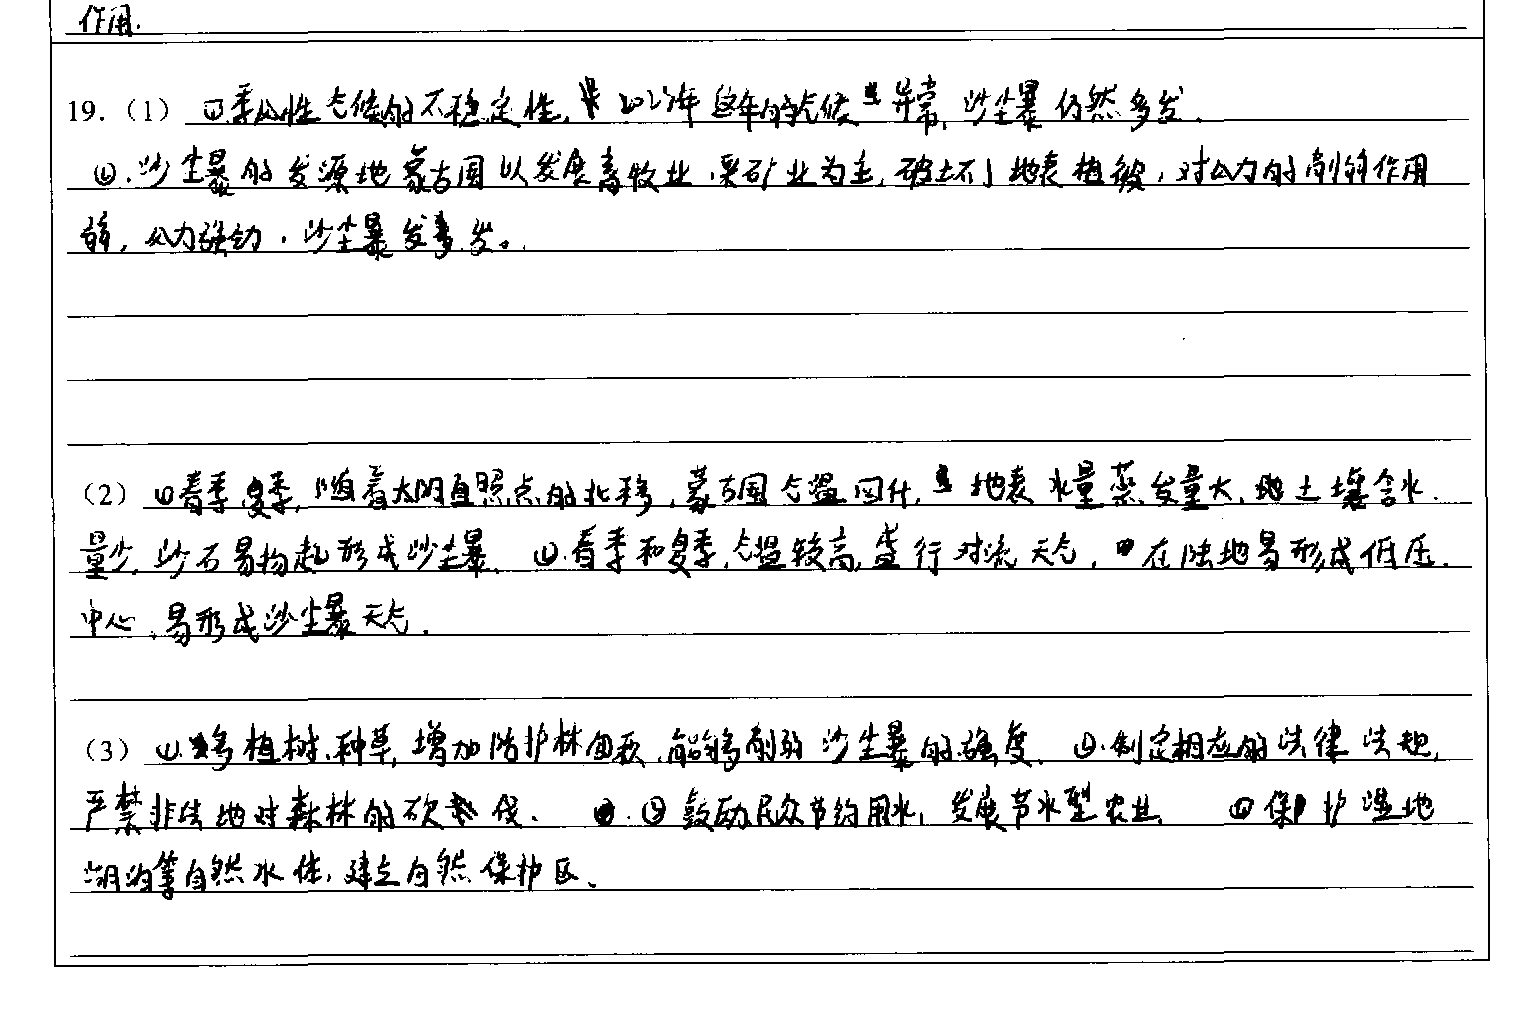 作用.
19.（1）①季风性气候的不稳定性, 2023年这年的气候异常, 沙尘暴仍然多发.
②.沙尘暴的发源地蒙古国以发展畜牧业,采矿业为主,破坏了地表植被,对风力的削弱作用
弱,风力强劲,沙尘暴多发。
（2）①春季夏季,随着太阳直照点的北移,蒙古国气温回升,地表水量蒸发量大,地土壤含水
量少,沙石易扬起形成沙尘暴. ②.春季和夏季,气温较高,盛行对流天气,在陆地易形成低压
中心,易形成沙尘暴天气.
（3）①.多植树、种草,增加防护林面积,能够削弱沙尘暴的强度. ②.制定相应的法律法规,
严禁非法地对森林的砍伐. ③鼓励民众节约用水,发展节水型农业. ④保护湿地
湖泊等自然水体,建立自然保护区.